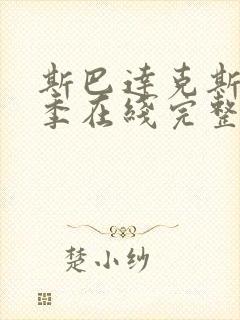 斯巴達克斯
季在綫完整
楚小纱